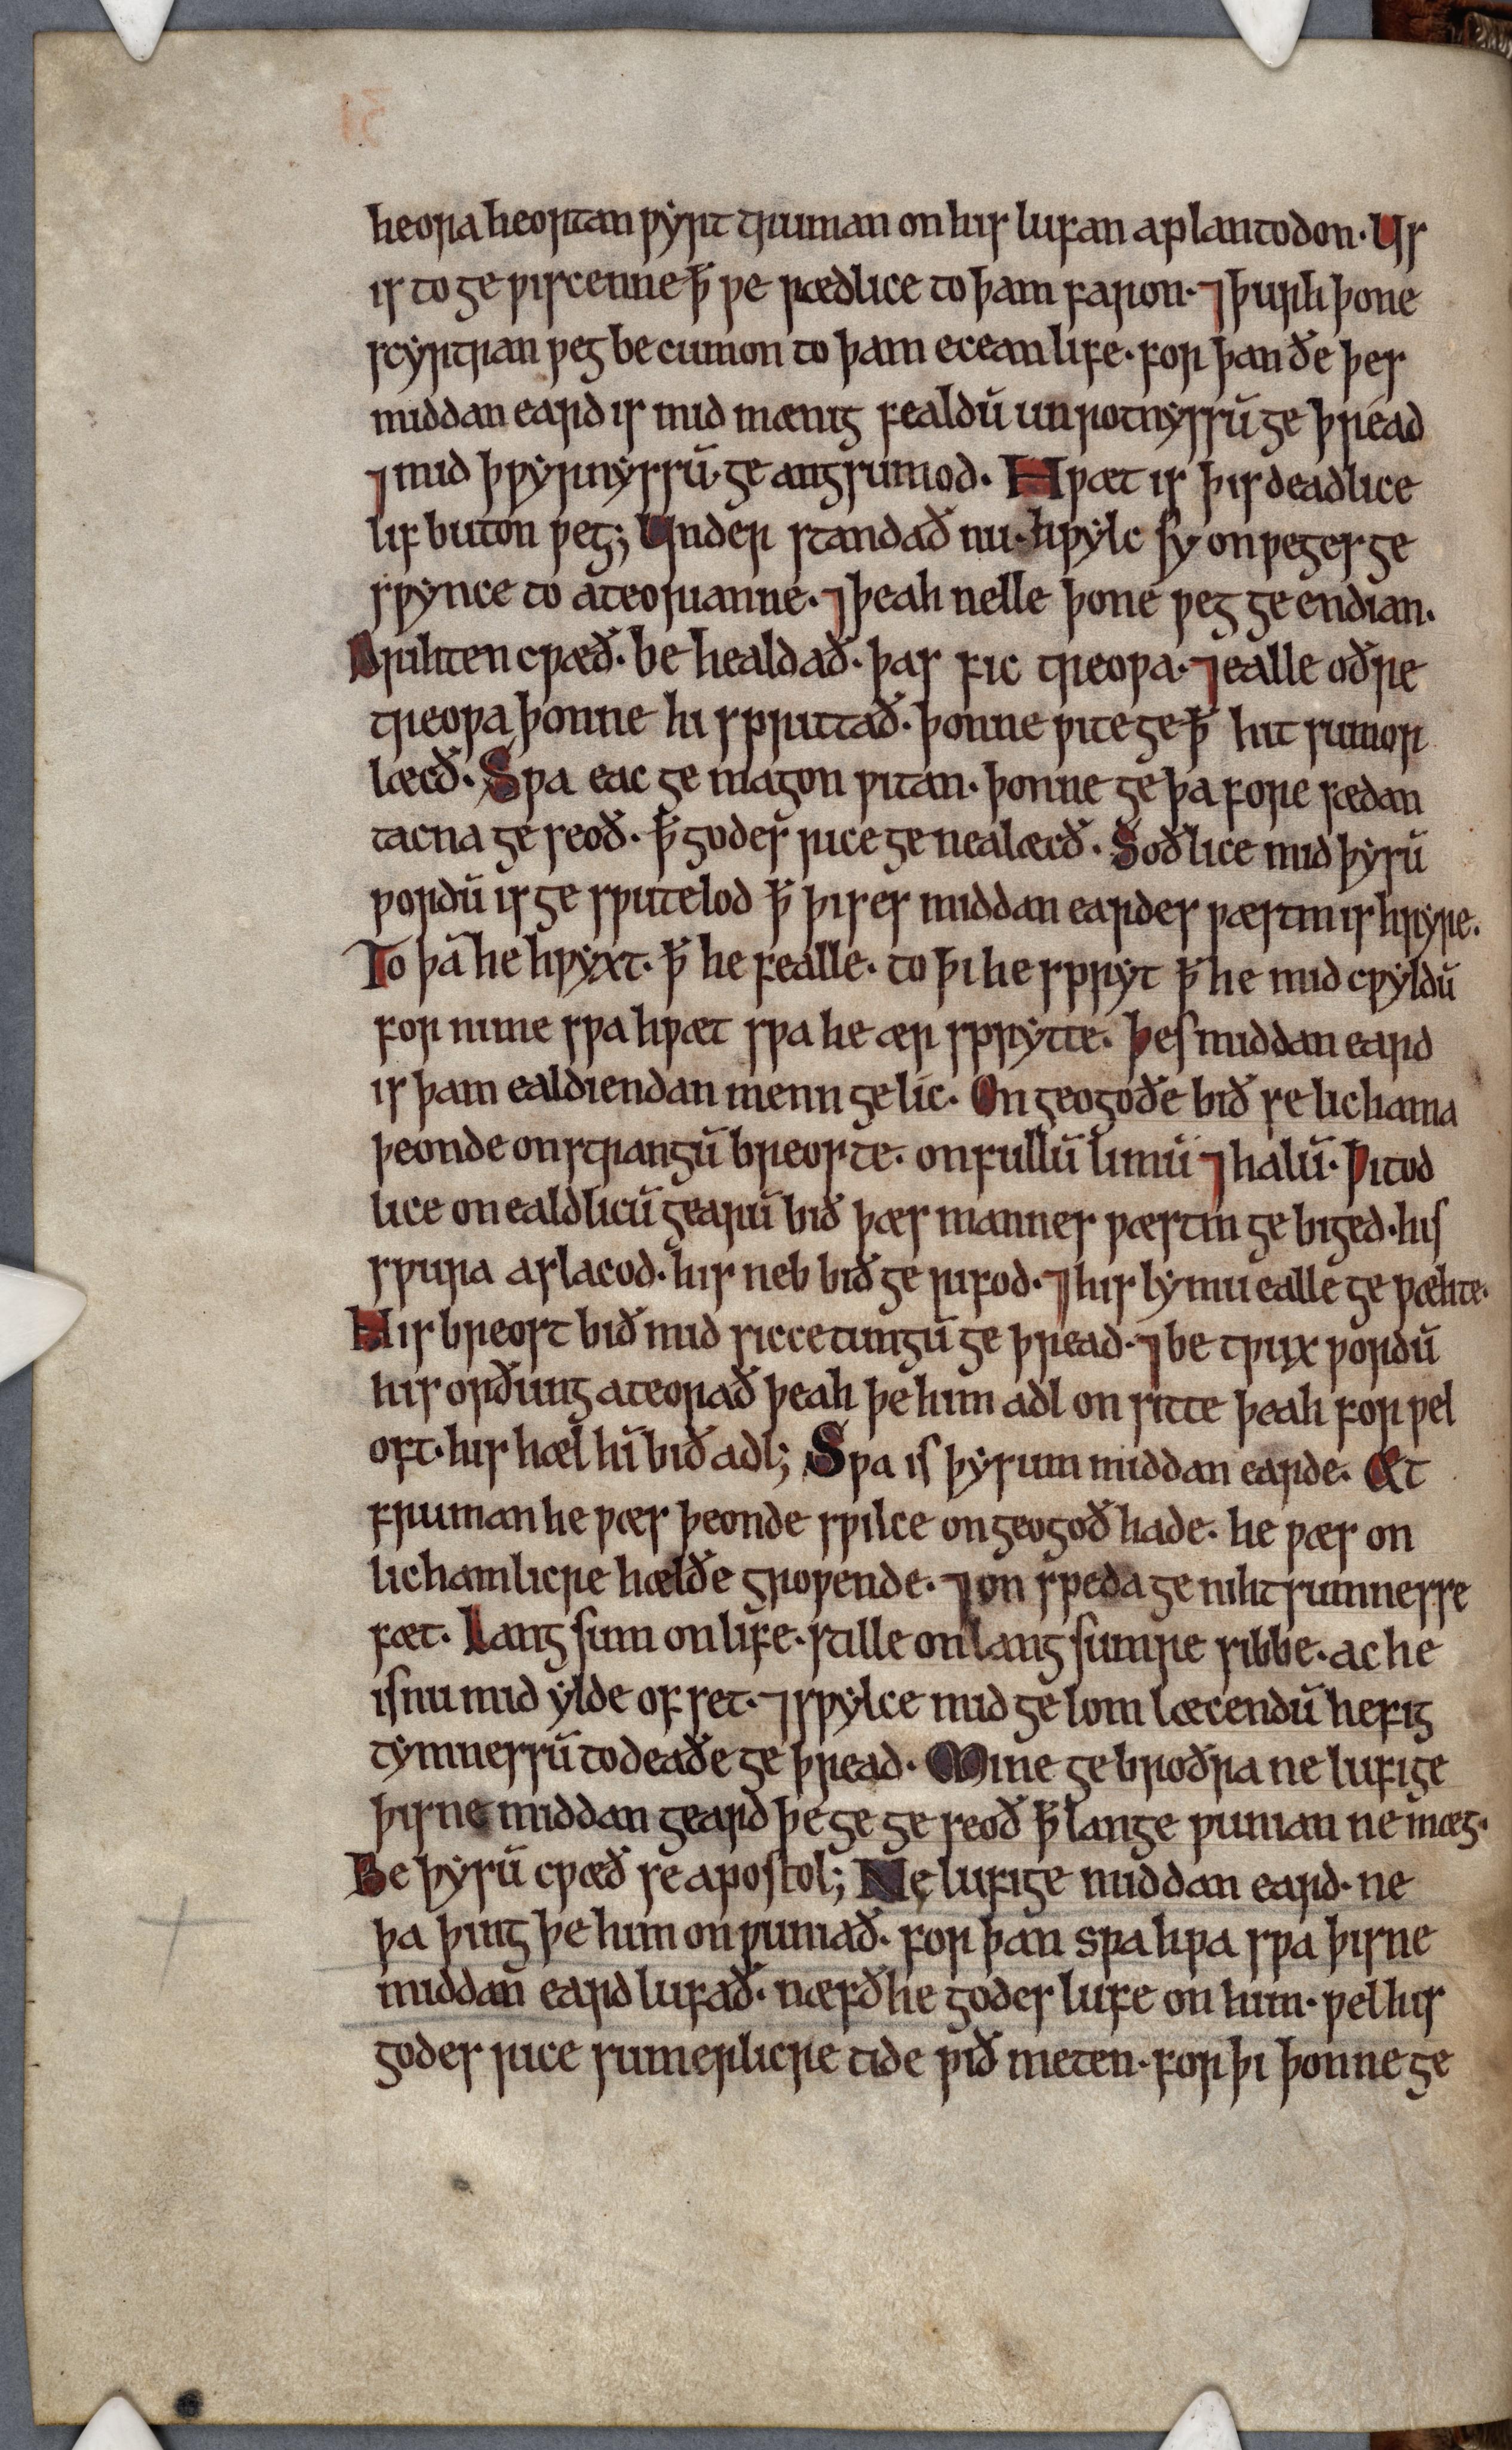 heora heortan ƿẏrt truman on his lufan aplantodon. Us
is to ge ƿiscenne ꝥ ƿe rædlice to þam faron. ⁊ þurh þone
scẏrtran ƿeg be cumon to þam ecean life. for þan ðe þes
middan eard is mid mænig fealdū unrotnẏssū ge þread
⁊ mid þƿẏrnẏssū ge angsumod. Hƿæt is þis deadlice
lif buton ƿeg; Under standað nu. hƿẏlc sy on ƿeges ge
sƿẏnce to ateorianne. ⁊ þeah nelle þone ƿeg ge endian.
Drihten cƿæð. be healdað. þas fic treoƿa. ⁊ ealle oðre
treoƿa þonne hi spruttað. þonne ƿite ge ꝥ hit sumor
læcð. Sƿa eac ge magon ƿitan. þonne ge þa fore sædan
tacna ge seoð. ꝥ godes rice ge nealæcð. Soðlice mid þẏsū
ƿordū is ge sƿutelod ꝥ þises middan eardes ƿæstm is hrẏre.
To þā he hƿẏxt. ꝥ he fealle. to þi he sprẏt ꝥ he mid cƿẏldū
for nime sƿa hƿæt sƿa he ær sprẏtte. þes middan eard
is þam ealdiendan menn ge lic. On geogoðe bið se lichama
þeonde on strangū breoste. on fullū limū ⁊ halū. Ƿitod
lice on ealdlicū gearū bið þæs mannes ƿæstm ge biged. his
sƿura aslacod. his neb bið ge rifod. ⁊ his lẏmu ealle ge ƿæhte.
His breost bið mid siccetungū ge þread. ⁊ be tƿux ƿordū
his orðung ateorað þeah þe him adl on sitte þeah for ƿel
oft. his hæl hī bið adl; Sƿa is þẏsum middan earde. Æt
fruman he ƿæs þeonde sƿilce on geogoð hade. he ƿæs on
lichamlicre hælðe groƿende. ⁊ on speda ge nihtsumnesse
fæt. Lang sum on life. stille on lang sumre sibbe. ac he
is nu mid ẏlde of set. ⁊ sƿẏlce mid ge lom læcendū hefig
tẏmnessū to deaðe ge þread. Mine ge broðra ne lufige
þisne middan geard þe ge ge seoð ꝥ lange ƿunian ne mæg.
Be þẏsū cƿæð se apostol; Ne lufige middan eard. ne
þa þing þe him on ƿuniað. for þan sƿa hƿa sƿa þisne
middan eard lufað. næfð he godes lufe on him. ƿel his
godes rice sumerlicre tide ƿið meten. for þi þonne ge